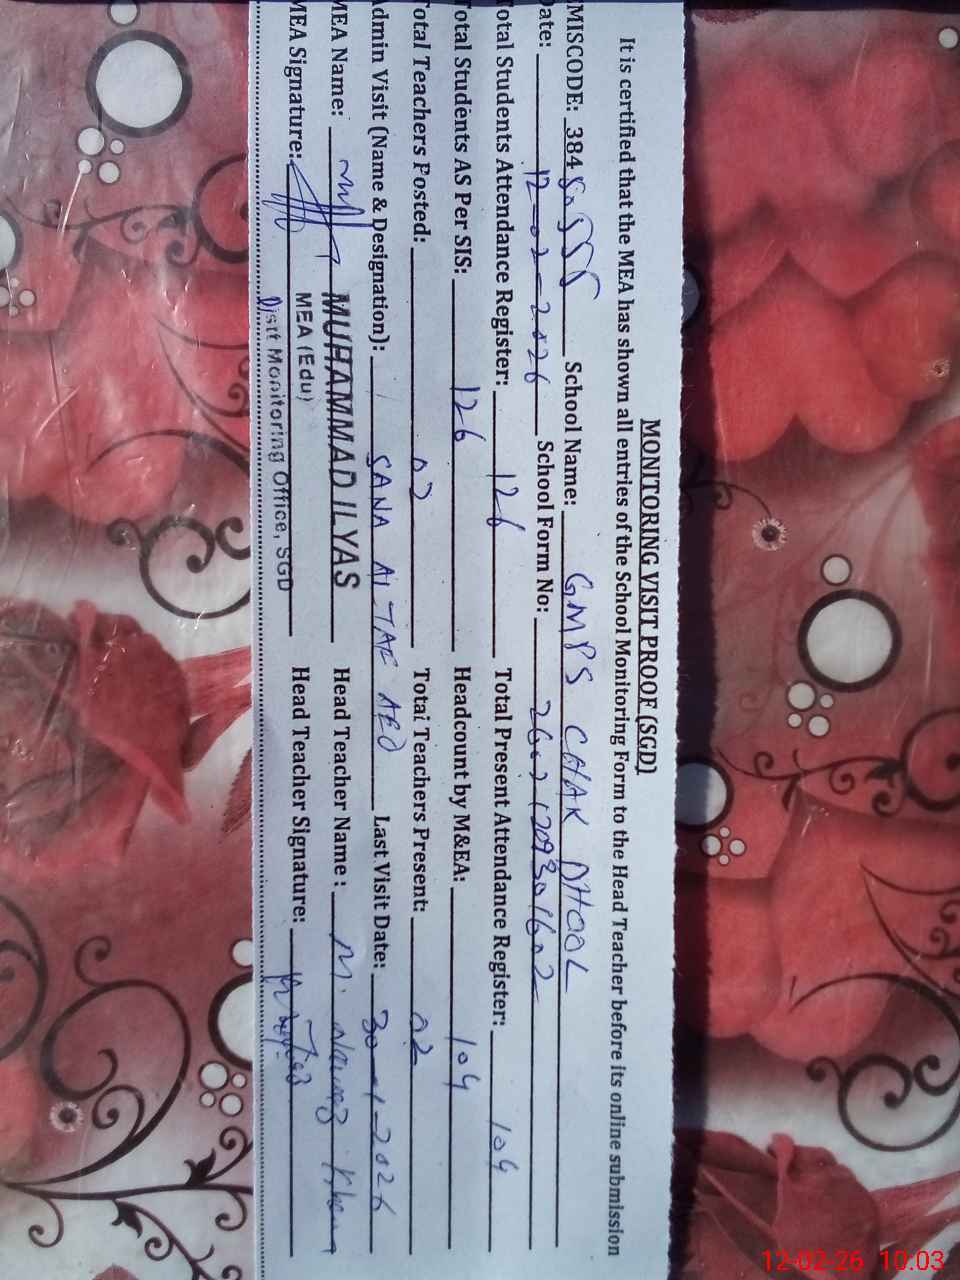 MONITORING VISIT PROOF (SGD)
It is certified that the MEA has shown all entries of the School Monitoring Form to the Head Teacher before its online submission
EMISCODE: 384 School Name: GMPS CHAK DHOOL
Date: 12-02-2026 School Form No:
Total Students Attendance Register: 126 Total Present Attendance Register: 104
Total Students AS Per SIS: 126 Headcount by M&EA: 104
Total Teachers Posted: 02 Total Teachers Present: 02
Admin Visit (Name & Designation): SANA ALTAF AEO Last Visit Date: 30-1-2026
MEA Name: MUHAMMAD ILYAS Head Teacher Name : M. Nawaz Khan
MEA Signature: Head Teacher Signature:
MEA (Edu)
Distt Monitoring Office, SGD
12-02-26 10:03